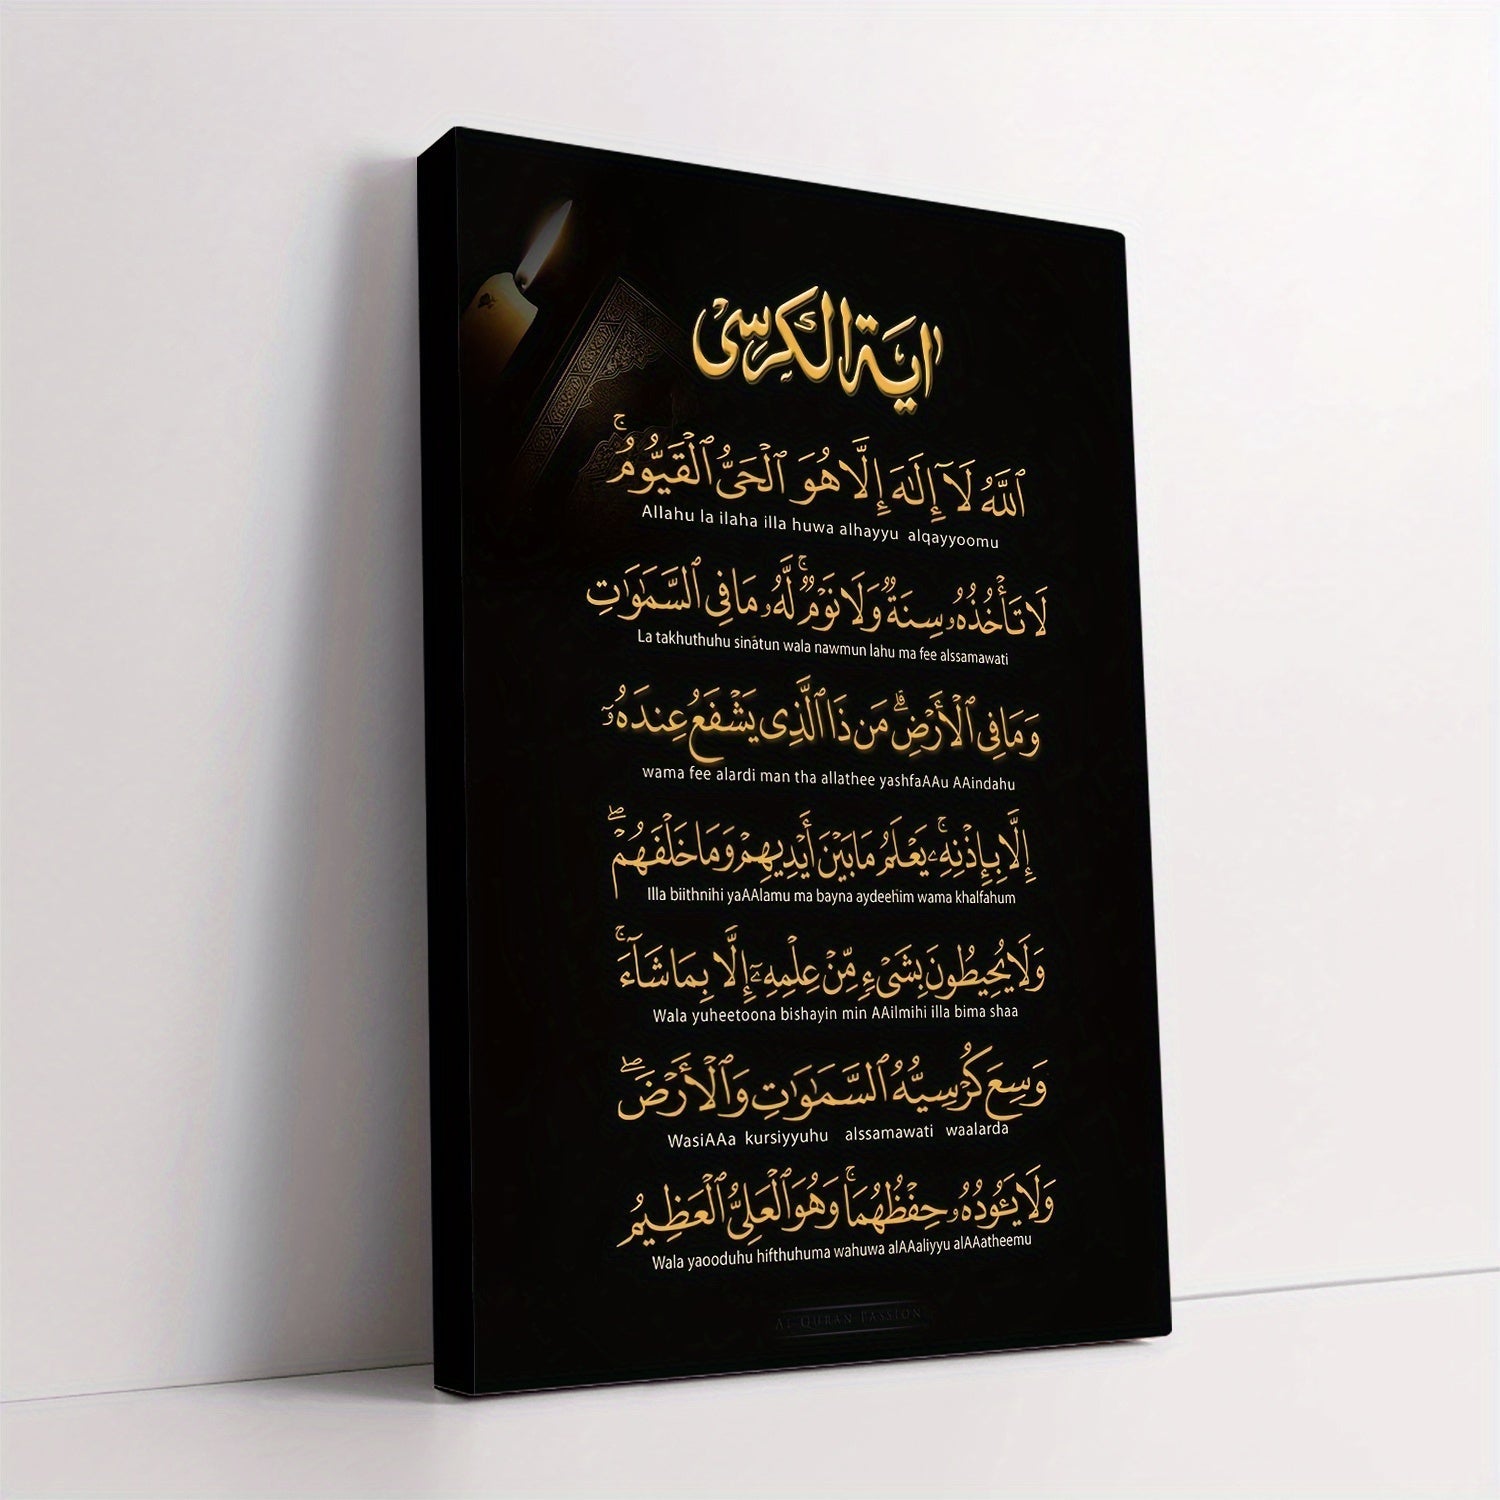 اية الكرسى
ٱللَّهُ لَآ إِلَٰهَ إِلَّا هُوَ ٱلْحَىُّ ٱلْقَيُّومُ ۚ
Allahu la ilaha illa huwa alhayyu alqayyoomu
لَا تَأْخُذُهُۥ سِنَةٌ وَلَا نَوْمٌ ۚ لَّهُۥ مَا فِى ٱلسَّمَٰوَٰتِ
La takhuthuhu sinatun wala nawmun lahu ma fee alssamawati
وَمَا فِى ٱلْأَرْضِ ۗ مَن ذَا ٱلَّذِى يَشْفَعُ عِندَهُۥٓ
wama fee alardi man tha allathee yashfaAAu AAindahu
إِلَّا بِإِذْنِهِۦ ۚ يَعْلَمُ مَا بَيْنَ أَيْدِيهِمْ وَمَا خَلْفَهُمْ ۖ
Illa biithnihi yaAAlamu ma bayna aydeehim wama khalfahum
وَلَا يُحِيطُونَ بِشَىْءٍ مِّنْ عِلْمِهِۦٓ إِلَّا بِمَا شَآءَ ۚ
Wala yuheetoona bishayin min AAilmihi illa bima shaa
وَسِعَ كُرْسِيُّهُ ٱلسَّمَٰوَٰتِ وَٱلْأَرْضَ ۖ
WasiAAa kursiyyuhu alssamawati waalarda
وَلَا يَـُٔودُهُۥ حِفْظُهُمَا ۚ وَهُوَ ٱلْعَلِىُّ ٱلْعَظِيمُ
Wala yaooduhu hifthuhuma wahuwa alAAaliyyu alAAatheemu
AL QURAN PASSION